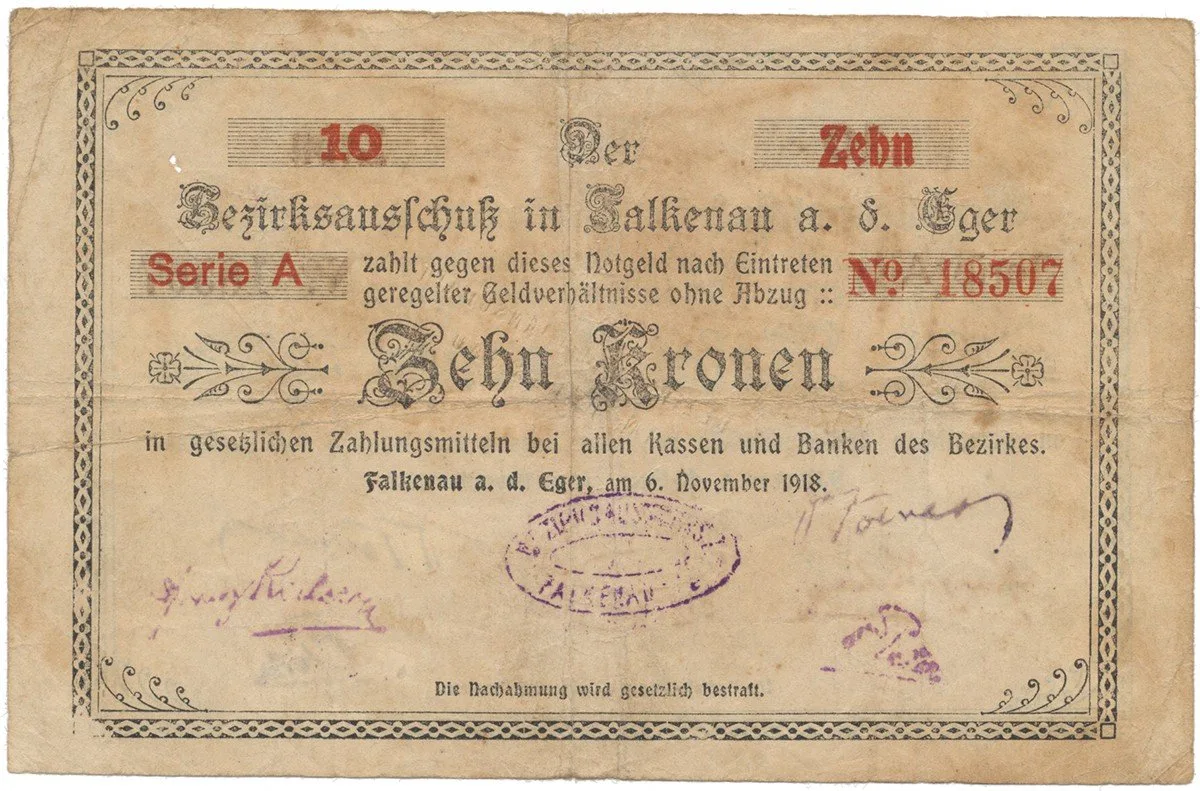 10
Der
Zehn
Bezirksausschuß in Falkenau a. d. Eger
Serie A
zahlt gegen dieses Notgeld nach Eintreten
geregelter Geldverhältnisse ohne Abzug ::
No. 18507
Zehn Kronen
in gesetzlichen Zahlungsmitteln bei allen Kassen und Banken des Bezirkes.
Falkenau a. d. Eger, am 6. November 1918.
FALKENAU
Die Nachahmung wird gesetzlich bestraft.